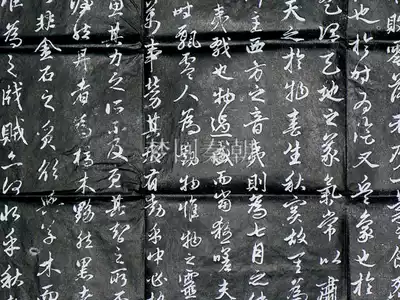 零
也於時為陰又兵象也
天地之義氣常以肅
天之於物春生秋實故其為
主西方之音夷則為七月之
夷戮也物過盛而當殺嗟夫
時飄零人為動物惟物之靈
萬事勞其形有動乎中必搖
其力之所不及憂其智之所不
渥然丹者為槁木黟然黑者
非金石之質欲與草木而
誰為之戕賊亦何恨乎秋
梦回秦朝